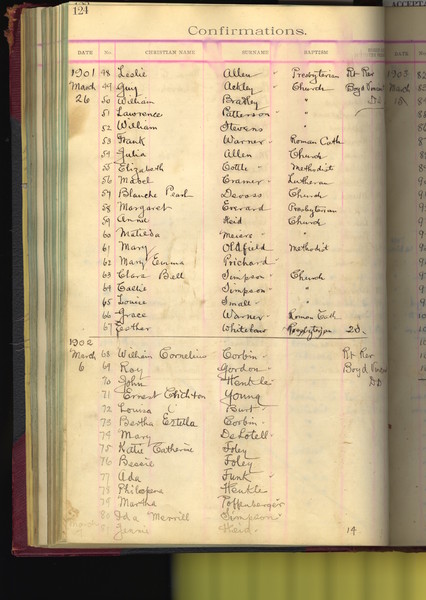 124
Confirmations.
DATE No. CHRISTIAN NAME SURNAME BAPTISM
1901 48 Leslie Allen " Presbyterian Rt Rev 1903
March 49 Guy Ackley " Church Boyd March
26 50 William Bradley "
51 Lawrence Patterson "
52 William Stevens "
53 Frank Warner " Roman Cath
54 Julia Allen Church
55 Elizabeth Cottle " Methodist
56 Mabel Cramer " Lutheran
57 Blanche Pearl Devoss Church
58 Margaret Everard Presbyterian
59 Annie Heid Church
60 Matilda Meiers "
61 Mary Oldfield Methodist
62 Mary Emma Prichard
63 Clara Bell Simpson Church
64 Callie Simpson "
65 Louise Small "
66 Grace Warner Roman Cath
67 Esther Whitehouse Presbyterian 20
1902
March 68 William Cornelius Corbin Rt Rev
6 69 Roy Gordon Boyd
70 John Henkle DD
71 Ernest Young
72 Louisa Burt
73 Bertha Estella Corbin
74 Mary DeLotell
75 Katie Catherine Foley
76 Bessie Foley
77 Ada Funk
78 Philopena Henkle
79 Martha Poffenberger
80 Ida Merrill Simpson
81 Jennie Heid 14